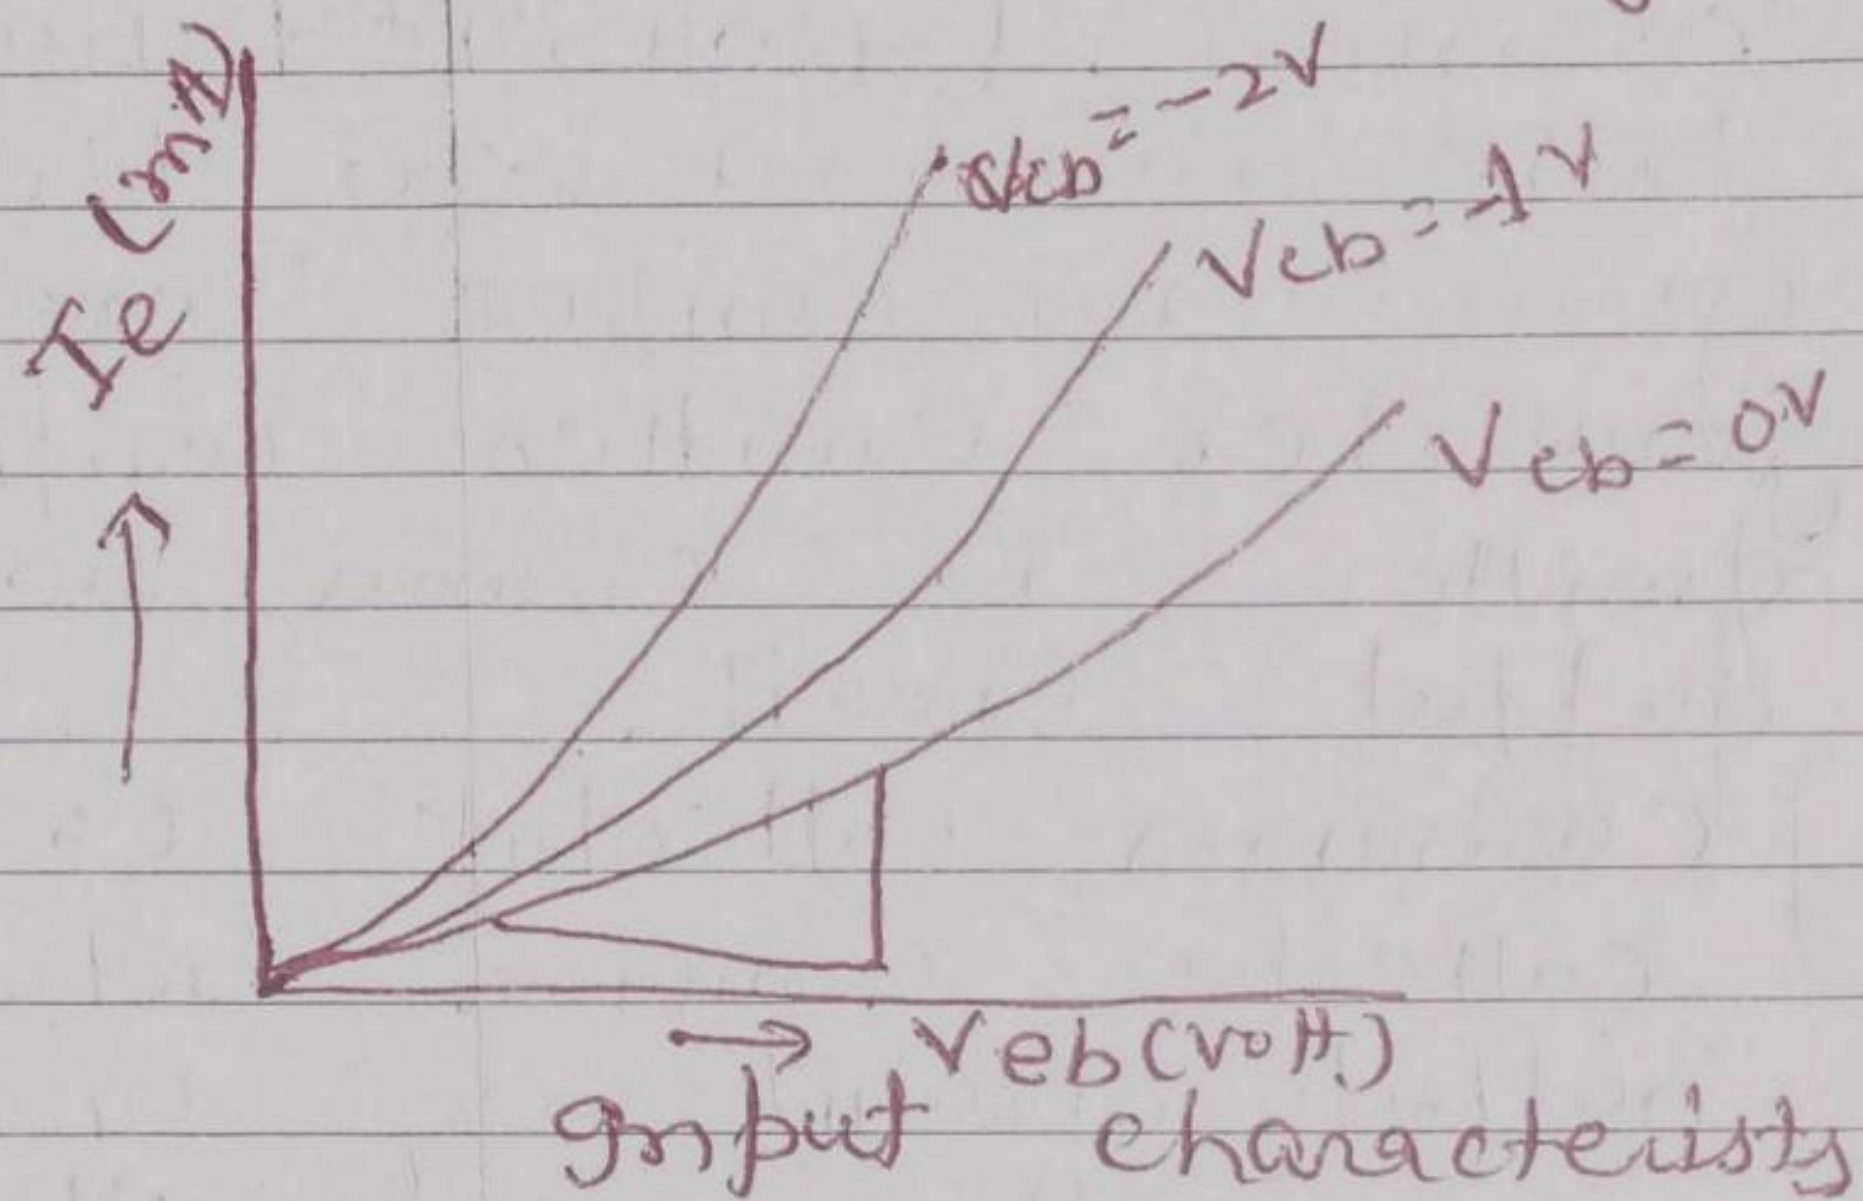 Ie (mA)
Vcb = -2V
Vcb = -1V
Vcb = 0V
Veb (volt)
Input characterists